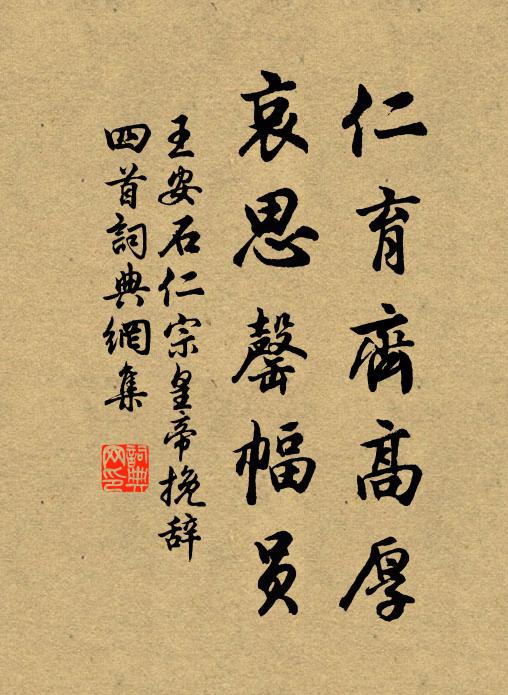 仁育齊高厚
哀思罄幅员
王安石仁宗皇帝挽辞
四首詞典網集
詞典
网印